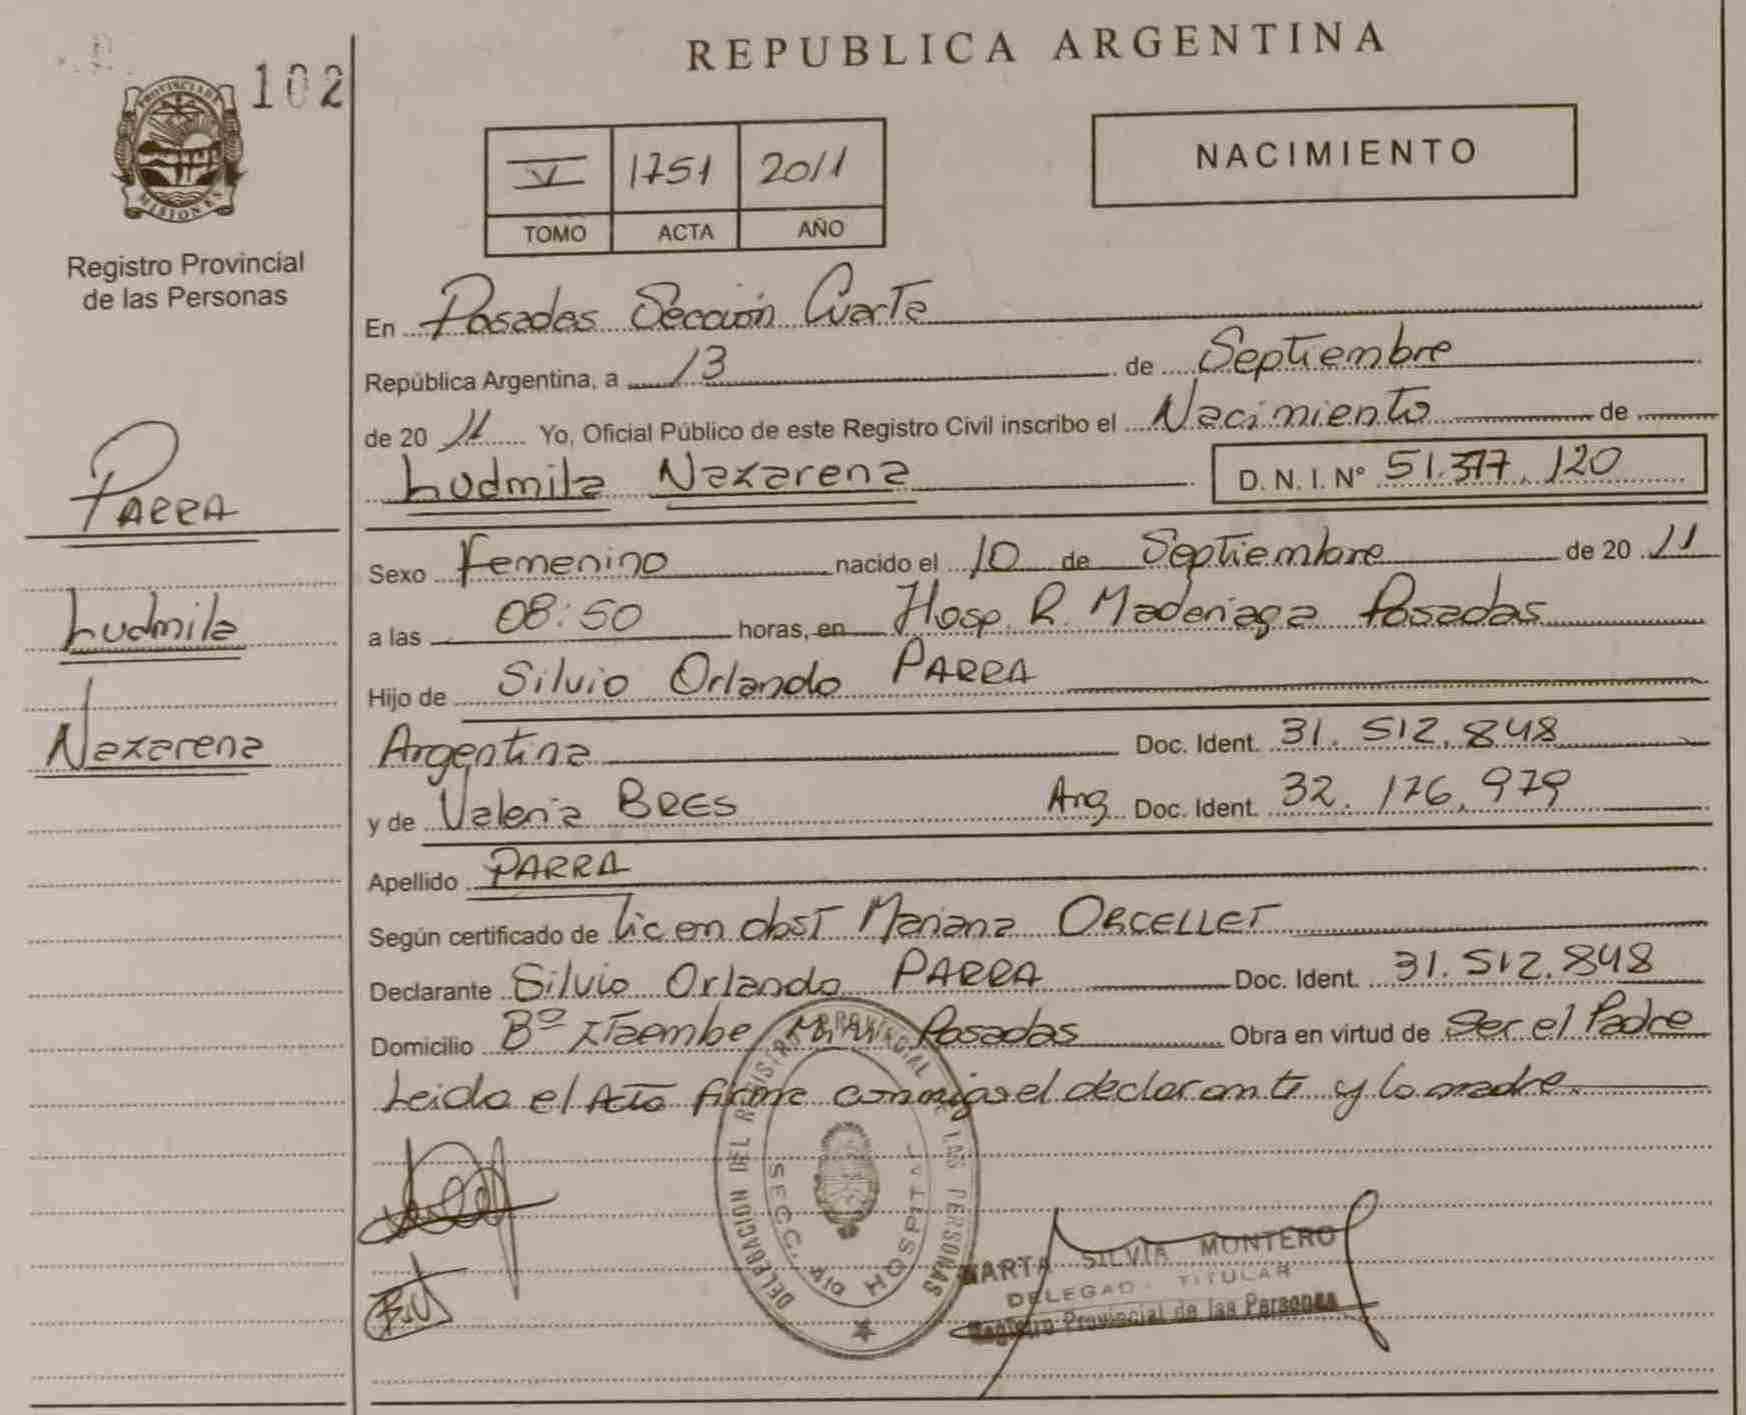 REPUBLICA ARGENTINA
102
PROVINCIA DE
MISIONES
Registro Provincial
de las Personas
V 1751 2011
TOMO ACTA AÑO
NACIMIENTO
En Posadas Sección Cuarta
República Argentina, a 13 de Septiembre
de 20 11 Yo, Oficial Público de este Registro Civil inscribo el Nacimiento de
Ludmila Nazarena D. N. I. N° 51.377.120
PARRA
Ludmila
Nazarena
Sexo Femenino nacido el 10 de Septiembre de 20 11
a las 08:50 horas, en Hosp. R. Madariaga Posadas
Hijo de Silvio Orlando PARRA
Argentina Doc. Ident. 31.512.848
y de Valeria BRES Arg Doc. Ident. 32.176.979
Apellido PARRA
Según certificado de Lic en obst Mariana ORCELLET
Declarante Silvio Orlando PARRA Doc. Ident. 31.512.848
Domicilio Bº Itaembe Posadas Obra en virtud de Ser el Padre
Leida el Acta firma conmigo el declarante y la madre.
DELEGACION DEL REGISTRO PROVINCIAL LAS PERSONAS
SECC. 4ta HOSPITAL
MARTA SILVIA MONTERO
DELEGAD TITULAR
Registro Provincial de las Personas